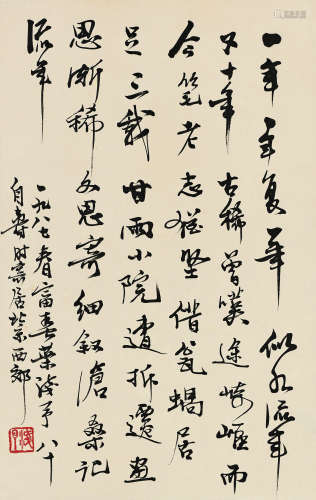 一年一年复一年 似水流年
又十年 古稀曾叹途崎岖 而
今笔老志犹坚 借瓮蜗居
足三载 甘雨小院遭拆迁 画
思渐稀文思寄 细叙沧桑记
流年
一九八七春富春葉浅予八十
自寿时寄居北京西郊